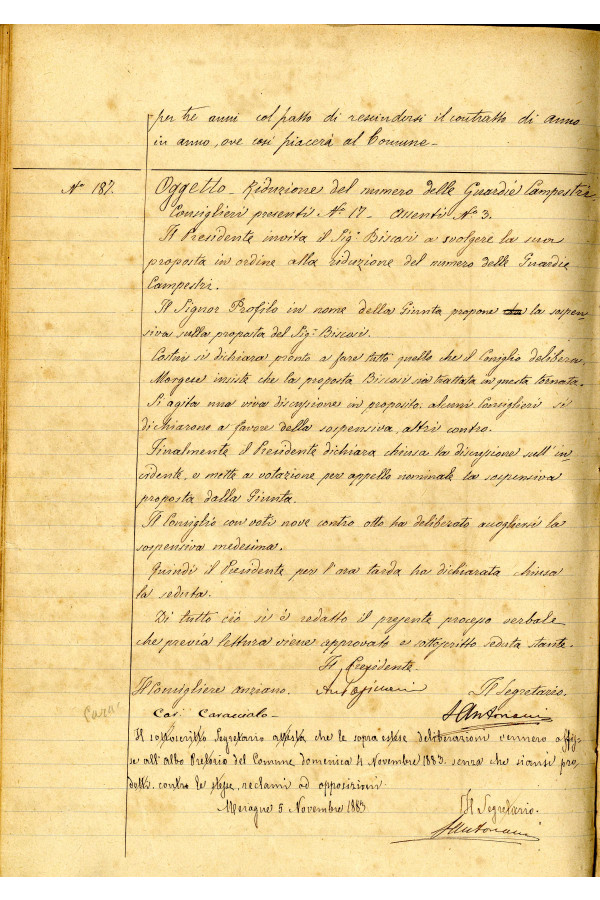 per tre anni col patto di rescindersi il contratto di anno
in anno, ove così piacerà al Comune_
N° 187. Oggetto_ Riduzione del numero delle Guardie Campestri_
Consiglieri presenti N° 17_ Assenti N° 3.
Il Presidente invita il Sig. Biscosi a svolgere la sua
proposta in ordine alla riduzione del numero delle Guardie
Campestri.
Il Signor Profilo in nome della Giunta propone la sospen-
siva sulla proposta del Sig. Biscosi.
Costui si dichiara pronto a fare tutto quello che il Consiglio delibera_
Morgese insiste che la proposta Biscosi sia trattata in questa tornata.
Si agita una viva discussione in proposito. alcuni Consiglieri si
dichiarono a favore della sospensiva, altri contro.
Finalmente il Presidente dichiara chiusa la discussione sull'in
cidente, e mette a votazione per appello nominale la sospensiva
proposta dalla Giunta.
Il Consiglio con voti nove contro otto ha deliberato accogliersi la
sospensiva medesima.
Quindi il Presidente per l'ora tarda ha dichiarata chiusa
la seduta.
Di tutto ciò si è redatto il presente processo verbale
che previa lettura viene approvato e sottoscritto seduta stante_
Il Presidente.
Il Consigliere anziano. Il Segretario.
Cav. Caracciolo_ Santoni
Il sottoscritto Segretario attesta che le sopra estese deliberazioni vennero affis-
se all'albo Pretorio del Comune domenica 4 Novembre 1883. senza che siansi pro
dotti contro le stesse, reclami od opposizioni
Mesagne 5 Novembre 1883 Il Segretario.